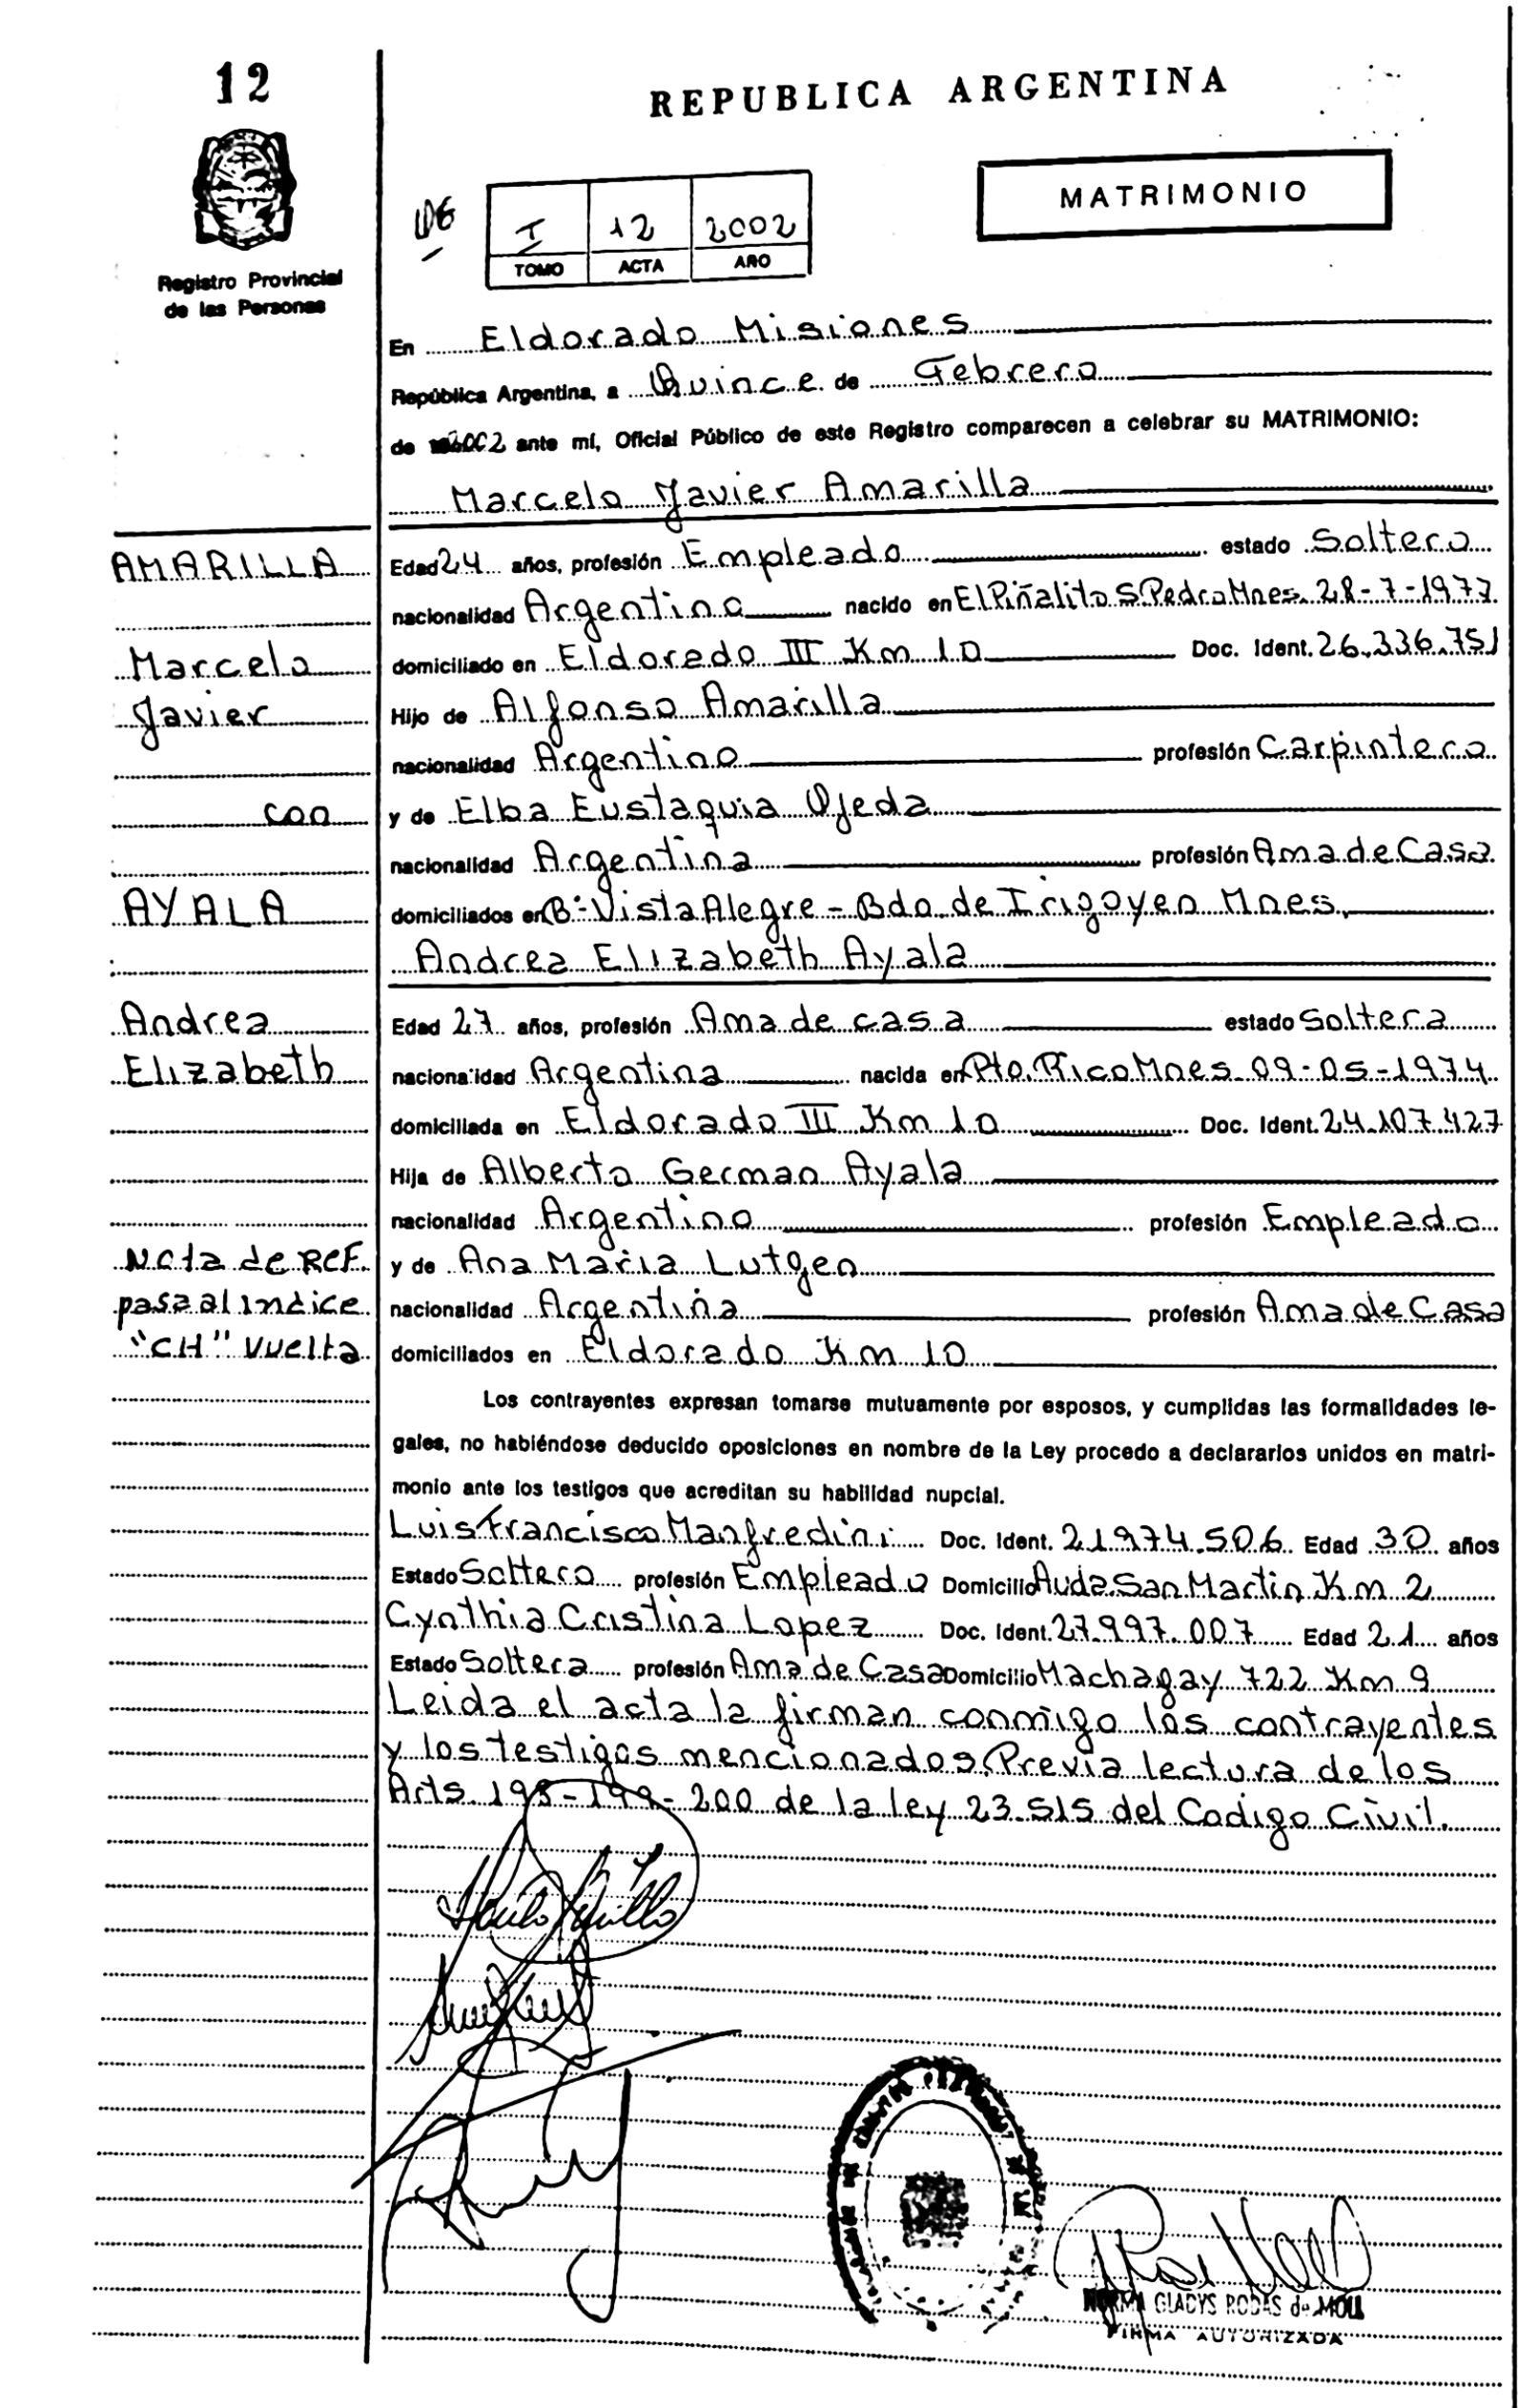 12
REPUBLICA ARGENTINA
MATRIMONIO
I 12 2002
TOMO ACTA AÑO
Registro Provincial
de las Personas
En Eldorado Misiones
República Argentina, a Quince de Febrero
de 2002 ante mí, Oficial Público de este Registro comparecen a celebrar su MATRIMONIO:
Marcelo Javier Amarilla
AMARILLA
Edad 24 años, profesión Empleado estado Soltero
nacionalidad Argentino nacido en El Piñalito S.Pedro Mnes. 28-7-1977
Marcelo
domiciliado en Eldorado III Km 10 Doc. Ident. 26.336.751
Javier
Hijo de Alfonso Amarilla
nacionalidad Argentino profesión Carpintero
con
y de Elba Eustaquia Ojeda
nacionalidad Argentina profesión Ama de Casa
AYALA
domiciliados en Bº Vista Alegre - Bdo. de Irigoyen Mnes.
Andrea Elizabeth Ayala
Andrea
Edad 27 años, profesión Ama de casa estado Soltera
Elizabeth
nacionalidad Argentina nacida en Pto. Rico Mnes 09-05-1974
domiciliada en Eldorado III Km 10 Doc. Ident. 24.107.427
Hija de Alberto German Ayala
nacionalidad Argentino profesión Empleado
Nota de REF.
y de Ana Maria Lutgen
pasa al indice
nacionalidad Argentina profesión Ama de Casa
"CH" vuelta
domiciliados en Eldorado Km 10
Los contrayentes expresan tomarse mutuamente por esposos, y cumplidas las formalidades le-
gales, no habiéndose deducido oposiciones en nombre de la Ley procedo a declararlos unidos en matri-
monio ante los testigos que acreditan su habilidad nupcial.
Luis Francisco Manfredini Doc. Ident. 21974.506 Edad 30 años
Estado Soltero profesión Empleado Domicilio Avda. San Martin Km 2
Cynthia Cristina Lopez Doc. Ident. 27.997.007 Edad 21 años
Estado Soltera profesión Ama de Casa Domicilio Machagay 722 Km 9
Leida el acta la firman conmigo los contrayentes
y los testigos mencionados. Previa lectura de los
Arts. 198-199-200 de la ley 23.515 del Codigo Civil.
NORMA GLADYS RODAS de MOLL
FIRMA AUTORIZADA